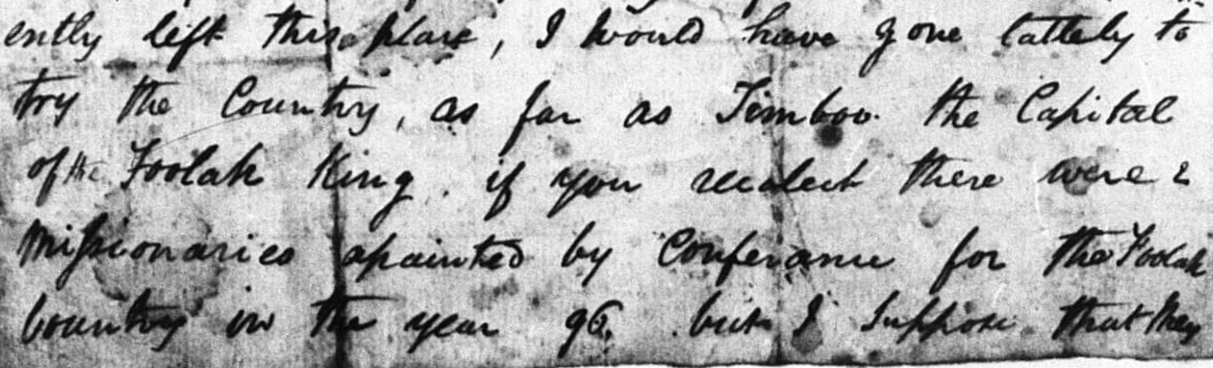 ently left this place, I would have gone lattely to
try the Country, as far as Timboo. the Capital
of the Foolah King. if you recolect there were 2
Missionaries apainted by Conferance for the Foolah
Country in the year 96. but I Suppose that they